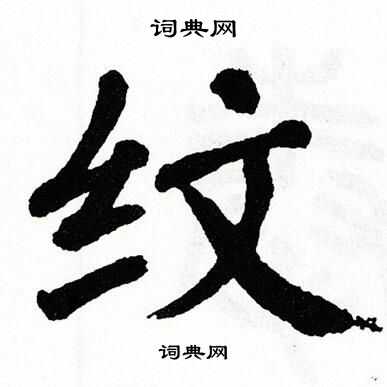 词典网
纹
词典网